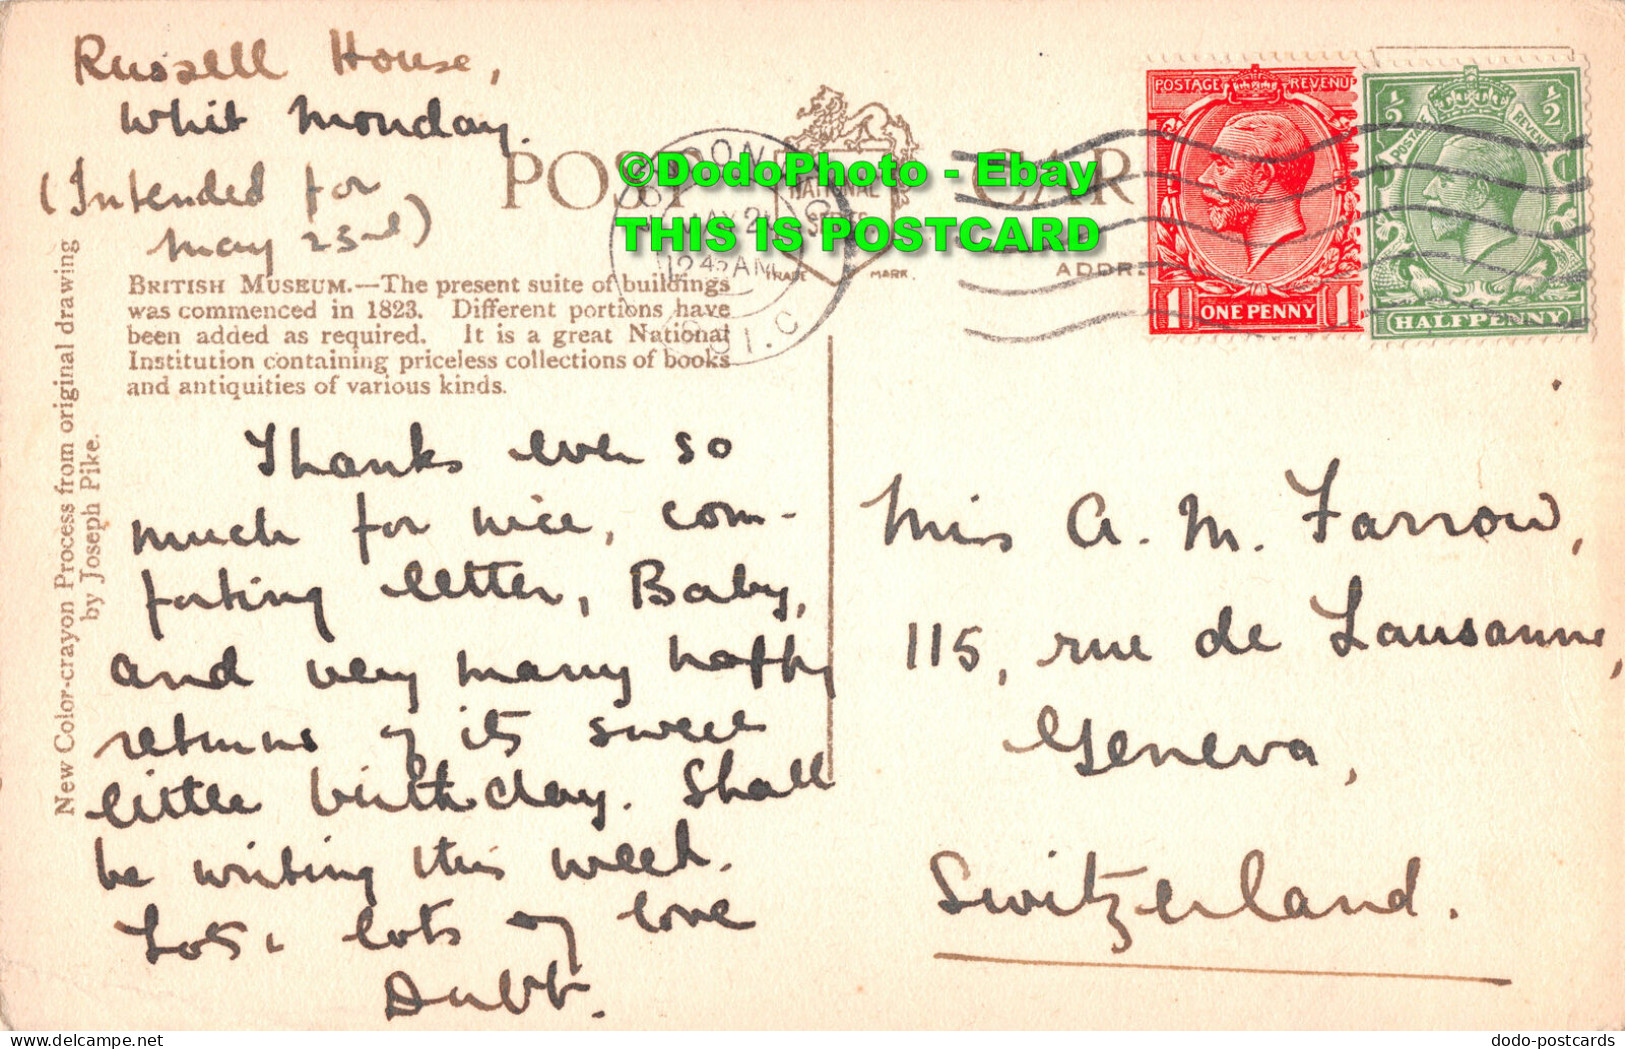 Russell House,
Whit Monday.
(Intended for
May 23rd)
POST CAR
©DodoPhoto - Ebay
THIS IS POSTCARD
NATIONAL
SERIES
TRADE MARK.
LONDON
MAY 21
12 45 AM
W.C.
ADDRE
POSTAGE REVENUE
1 ONE PENNY 1
½ ½
POSTAGE REVENUE
HALFPENNY
BRITISH MUSEUM.—The present suite of buildings
was commenced in 1823. Different portions have
been added as required. It is a great National
Institution containing priceless collections of books
and antiquities of various kinds.
New Color-crayon Process from original drawing
by Joseph Pike.
Thanks ever so
much for nice, com-
forting letter, Baby,
and very many happy
returns of its sweet
little birthday. Shall
be writing this week.
Lots & lots of love
Miss A. M. Farrow,
115, rue de Lausanne,
Geneva,
Switzerland.
dodo-postcards